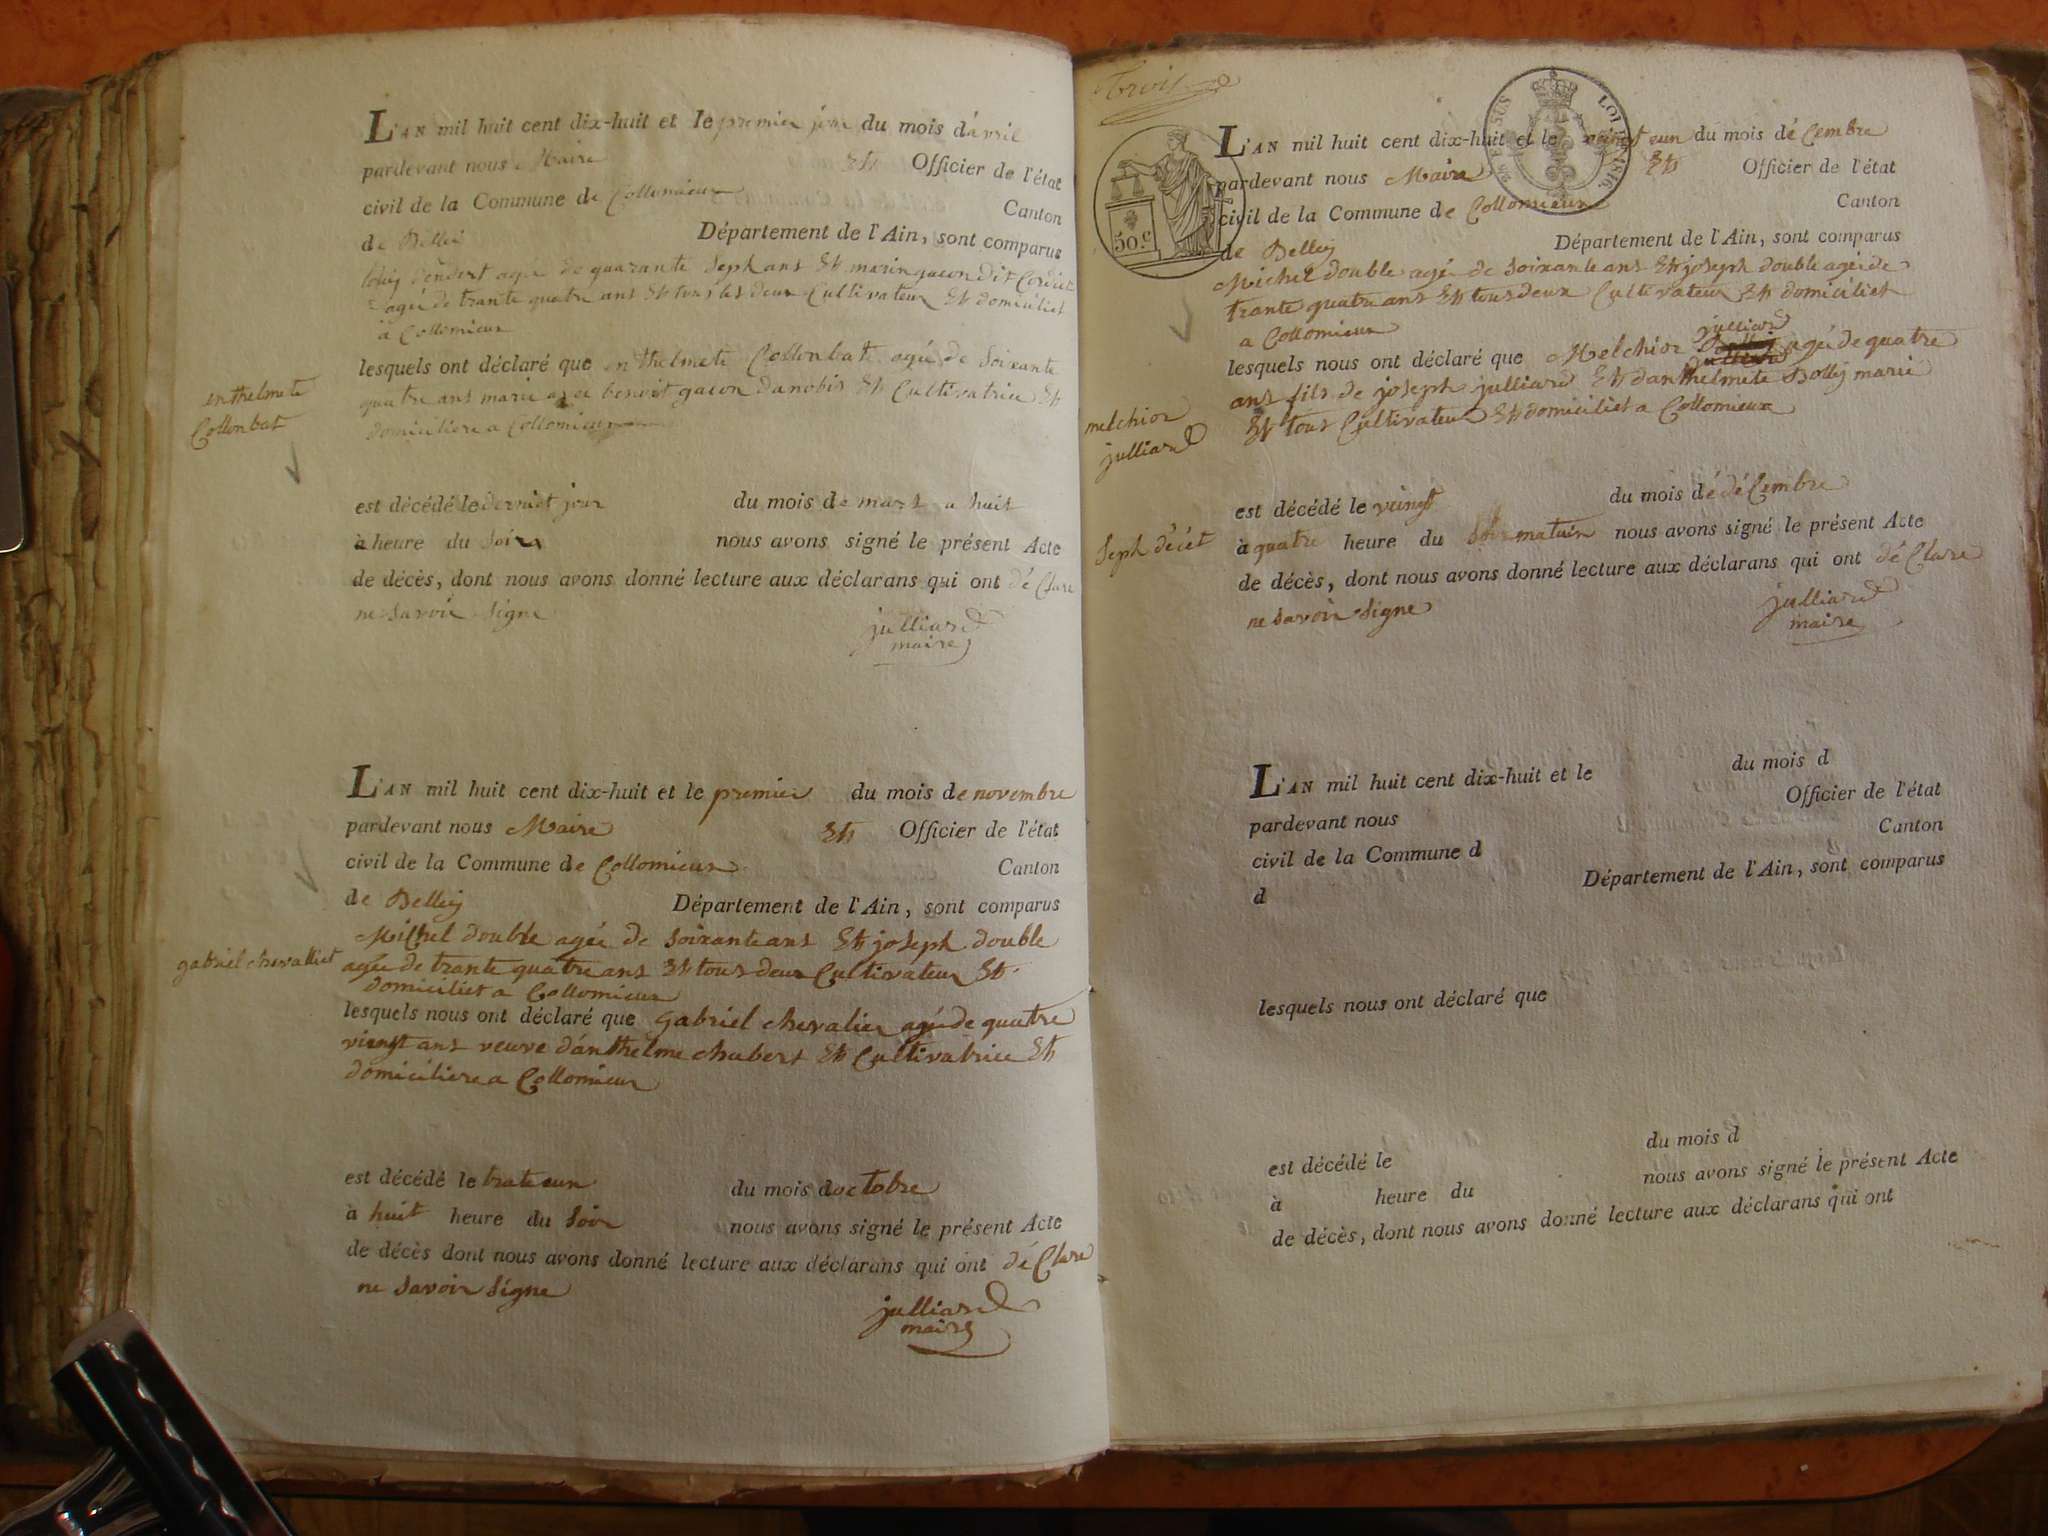 L'AN mil huit cent dix-huit et le premier jour du mois d'avril
pardevant nous Maire Et Officier de l'état
civil de la Commune de Collomieux Canton
de Belley Département de l'Ain, sont comparus
agée de quarante Seph ans Et marin gacon dit Cordier
agée de trante quatre ans Et tous les deux Cultivateur Et domiciliet
a Collomieux
lesquels ont déclaré que enthelmete Collonbat agée de Soixante
quatre ans marie avec benoit gacon danobis Et Cultivatrice Et
domiciliere a Collomieux
enthelmete
Collonbat
est décédé le derniet jour du mois de mars a huit
à heure du Soir nous avons signé le présent Acte
de décès, dont nous avons donné lecture aux déclarans qui ont dé Clare
ne Savoir Signe
julliard
maire
L'AN mil huit cent dix-huit et le premier du mois de novembre
pardevant nous Maire Et Officier de l'état
civil de la Commune de Collomieux Canton
de Belley Département de l'Ain, sont comparus
Michel double agée de Soixante ans Et joseph double
gabriel chevalliet
agée de trante quatre ans Et tous deux Cultivateur Et
domiciliet a Collomieux
lesquels nous ont déclaré que gabriel chevalier agée de quatre
viengt ans veuve d'anthelme chabert Et Cultivatrice Et
domiciliere a Collomieux
est décédé le trate eun du mois d'octobre
à huit heure du Soir nous avons signé le présent Acte
de décès dont nous avons donné lecture aux déclarans qui ont dé Clare
ne Savoir Signe
julliard
maire
trois
LOI
50.c
L'AN mil huit cent dix-huit et le veingt eun du mois dé Cembre
pardevant nous Maire Et Officier de l'état
civil de la Commune de Collomieux Canton
de Belley Département de l'Ain, sont comparus
Michel double agée de Soixante ans Et joseph double agée de
trante quatre ans Et tous deux Cultivateur Et domiciliet
a Collomieux
lesquels nous ont déclaré que Melchior julliard agée de quatre
ans fils de joseph julliard Et danthelmete Bolley marie
Et tous Cultivateur Et domiciliet a Collomieux
melchior
julliard
est décédé le veingt du mois dé déCembre
Seph décet
à quatre heure du matuin nous avons signé le présent Acte
de décès, dont nous avons donné lecture aux déclarans qui ont dé Clare
ne Savoir Signe
julliard
maire
L'AN mil huit cent dix-huit et le du mois d
pardevant nous Officier de l'état
civil de la Commune d Canton
d Département de l'Ain, sont comparus
lesquels nous ont déclaré que
est décédé le du mois d
à heure du nous avons signé le présent Acte
de décès, dont nous avons donné lecture aux déclarans qui ont